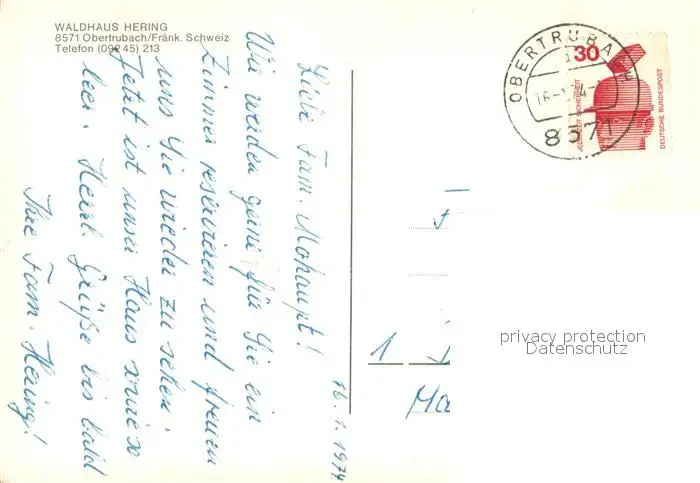 WALDHAUS HERING
8571 Obertrubach/Fränk. Schweiz
Telefon (09245) 213
16.1.1974
Liebe Fam. Mohaupt!
Wir werden gerne für Sie ein
Zimmer reservieren und freuen
uns Sie wieder zu sehen.
Jetzt ist unser Haus sowieso
leer. Herzl. Grüße bis bald
Ihre Fam. Hering!
OBERTRUBACH
8571
30
JEDERZEIT SICHERHEIT
DEUTSCHE BUNDESPOST
1
Ma
privacy protection
Datenschutz